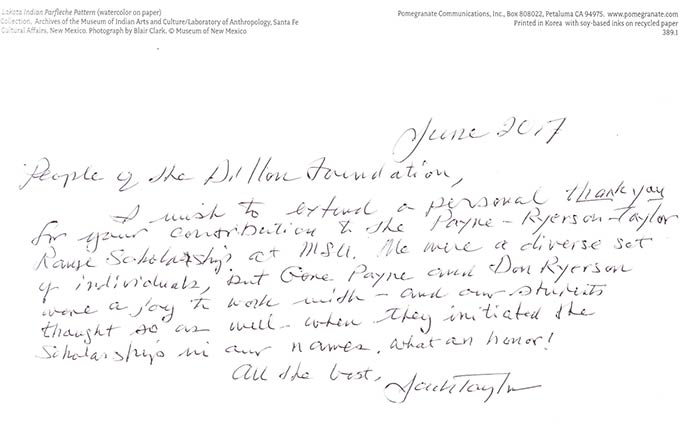 Lakota Indian Parfleche Pattern (watercolor on paper)
Collection, Archives of the Museum of Indian Arts and Culture/Laboratory of Anthropology, Santa Fe
Cultural Affairs, New Mexico. Photograph by Blair Clark. © Museum of New Mexico
Pomegranate Communications, Inc., Box 808022, Petaluma CA 94975, www.pomegranate.com
Printed in Korea with soy-based inks on recycled paper
389.1
June 2017
People of the Dillon Foundation,
I wish to extend a personal thank you
for your contribution to the Payne-Ryerson-Taylor
Range Scholarship at MSU. We were a diverse set
of individuals, but Gene Payne and Don Ryerson
were a joy to work with - and our students
thought so as well - when they initiated the
Scholarships in our names. What an honor!
All the best,
Jack Taylor